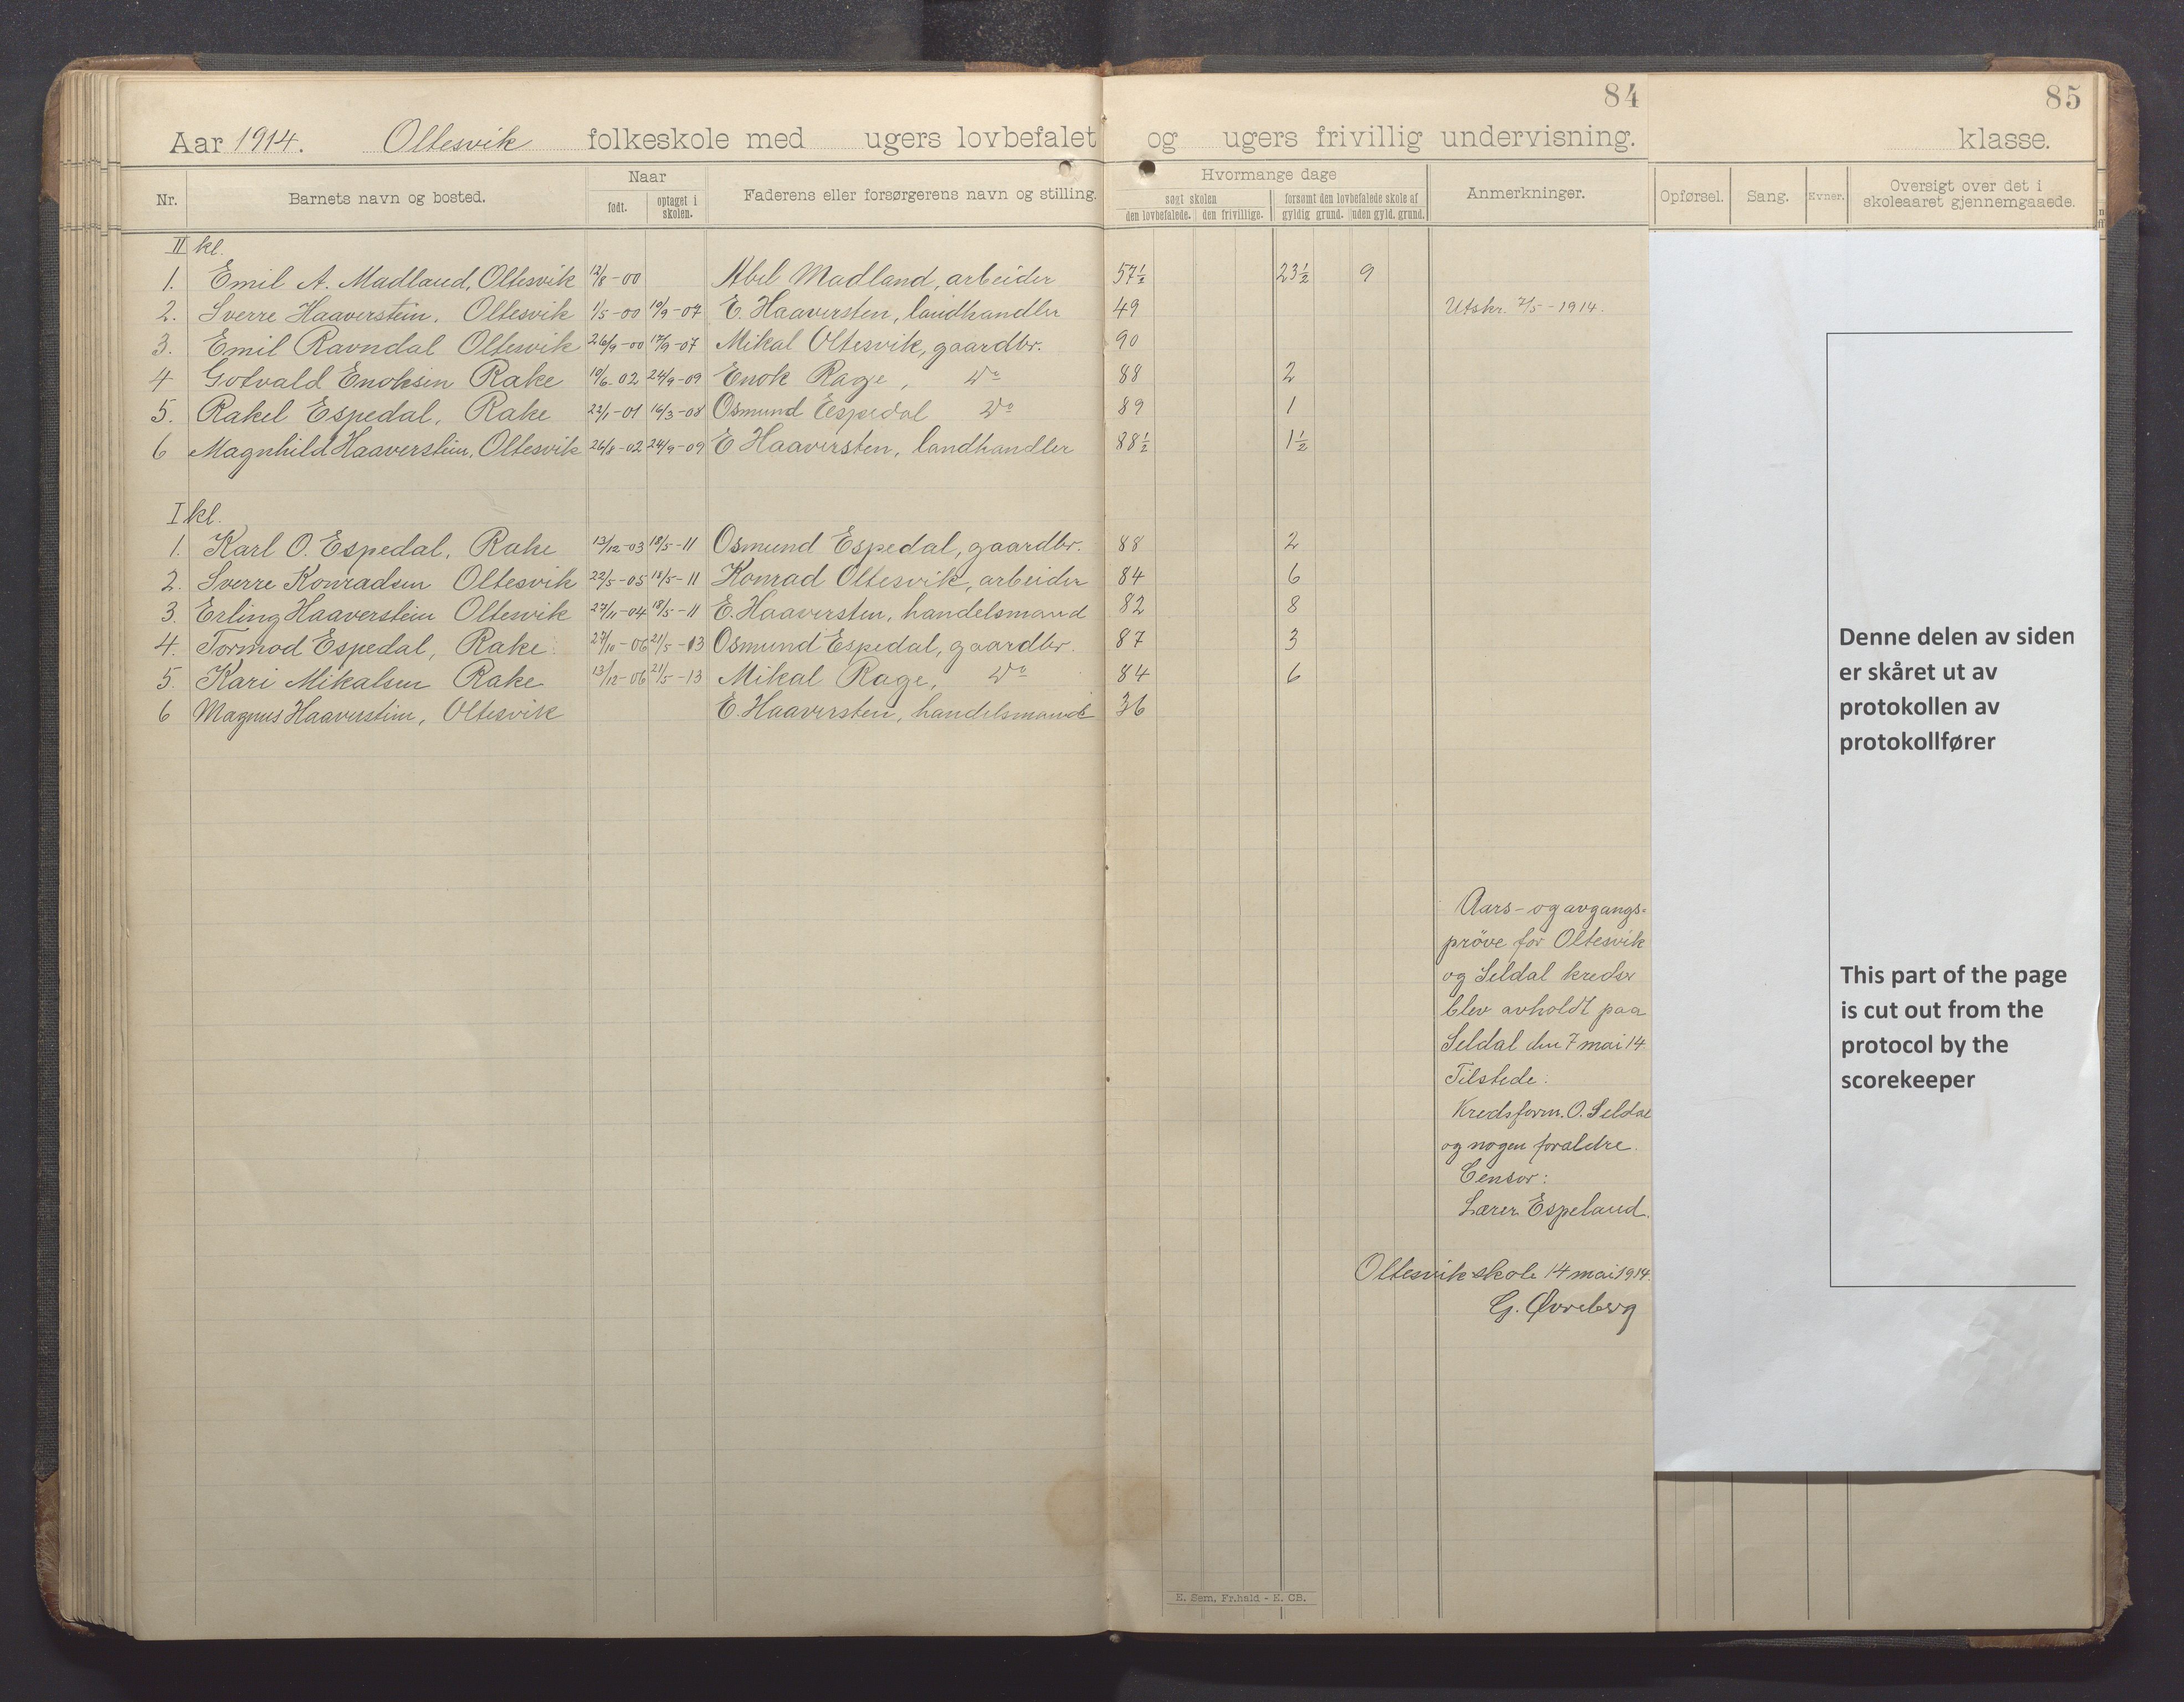 84
85
Aar 1914. Oltesvik folkeskole med ugers lovbefalet og ugers frivillig undervisning. klasse.
Nr. Barnets navn og bosted. Naar Faderens eller forsørgerens navn og stilling. Hvormange dage Anmerkninger. Opførsel. Sang. Evner. Oversigt over det i
født. optaget i søgt skolen forsømt den lovbefalede skole af skoleaaret gjennemgaaede.
skolen. den lovbefalede. den frivillige. gyldig grund. uden gyld. grund.
II kl.
1. Emil A. Madland, Oltesvik 12/8-00 Abel Madland, arbeider 57½ 23½ 9
2. Sverre Haaverstein, Oltesvik 1/5-00 10/9-07 E. Haaversten, landhandler 49 Utskr. 7/5-1914.
3. Emil Ravndal Oltesvik 26/9-00 17/9-07 Mikal Oltesvik, gaardbr. 90
4 Gotvald Enoksen Rake 10/6-02 24/9-09 Enok Rage, Do 88 2
5. Rakel Espedal, Rake 22/1-01 16/3-08 Osmund Espedal Do 89 1
6 Magnhild Haaverstein, Oltesvik 26/8-02 24/9-09 E Haaversten, landhandler 88½ 1½
I kl.
1. Karl O. Espedal, Rake 13/12-03 18/5-11 Osmund Espedal, gaardbr. 88 2
2. Sverre Konradsen Oltesvik 22/5-05 18/5-11 Konrad Oltesvik, arbeider 84 6
3. Erling Haaverstein Oltesvik 27/11-04 18/5-11 E. Haaversten, handelsmand 82 8
4. Tormod Espedal, Rake 27/10-06 21/5-13 Osmund Espedal, gaardbr. 87 3
5. Kari Mikalsen Rake 13/12-06 21/5-13 Mikal Rage, Do 84 6
6 Magnus Haaverstein, Oltesvik E. Haaversten, handelsmand 36
Aars- og avgangs-
prøve for Oltesvik
og Seldal kredser
blev avholdt paa
Seldal den 7 mai 14
Tilstede:
Kredsform. O. Seldal
og nogen forældre.
Censor:
Lærer Espeland.
Oltesvik skole 14 mai 1914.
G. Øvreberg
E. Sem, Fr.hald - E. CB.
Denne delen av siden
er skåret ut av
protokollen av
protokollfører
This part of the page
is cut out from the
protocol by the
scorekeeper